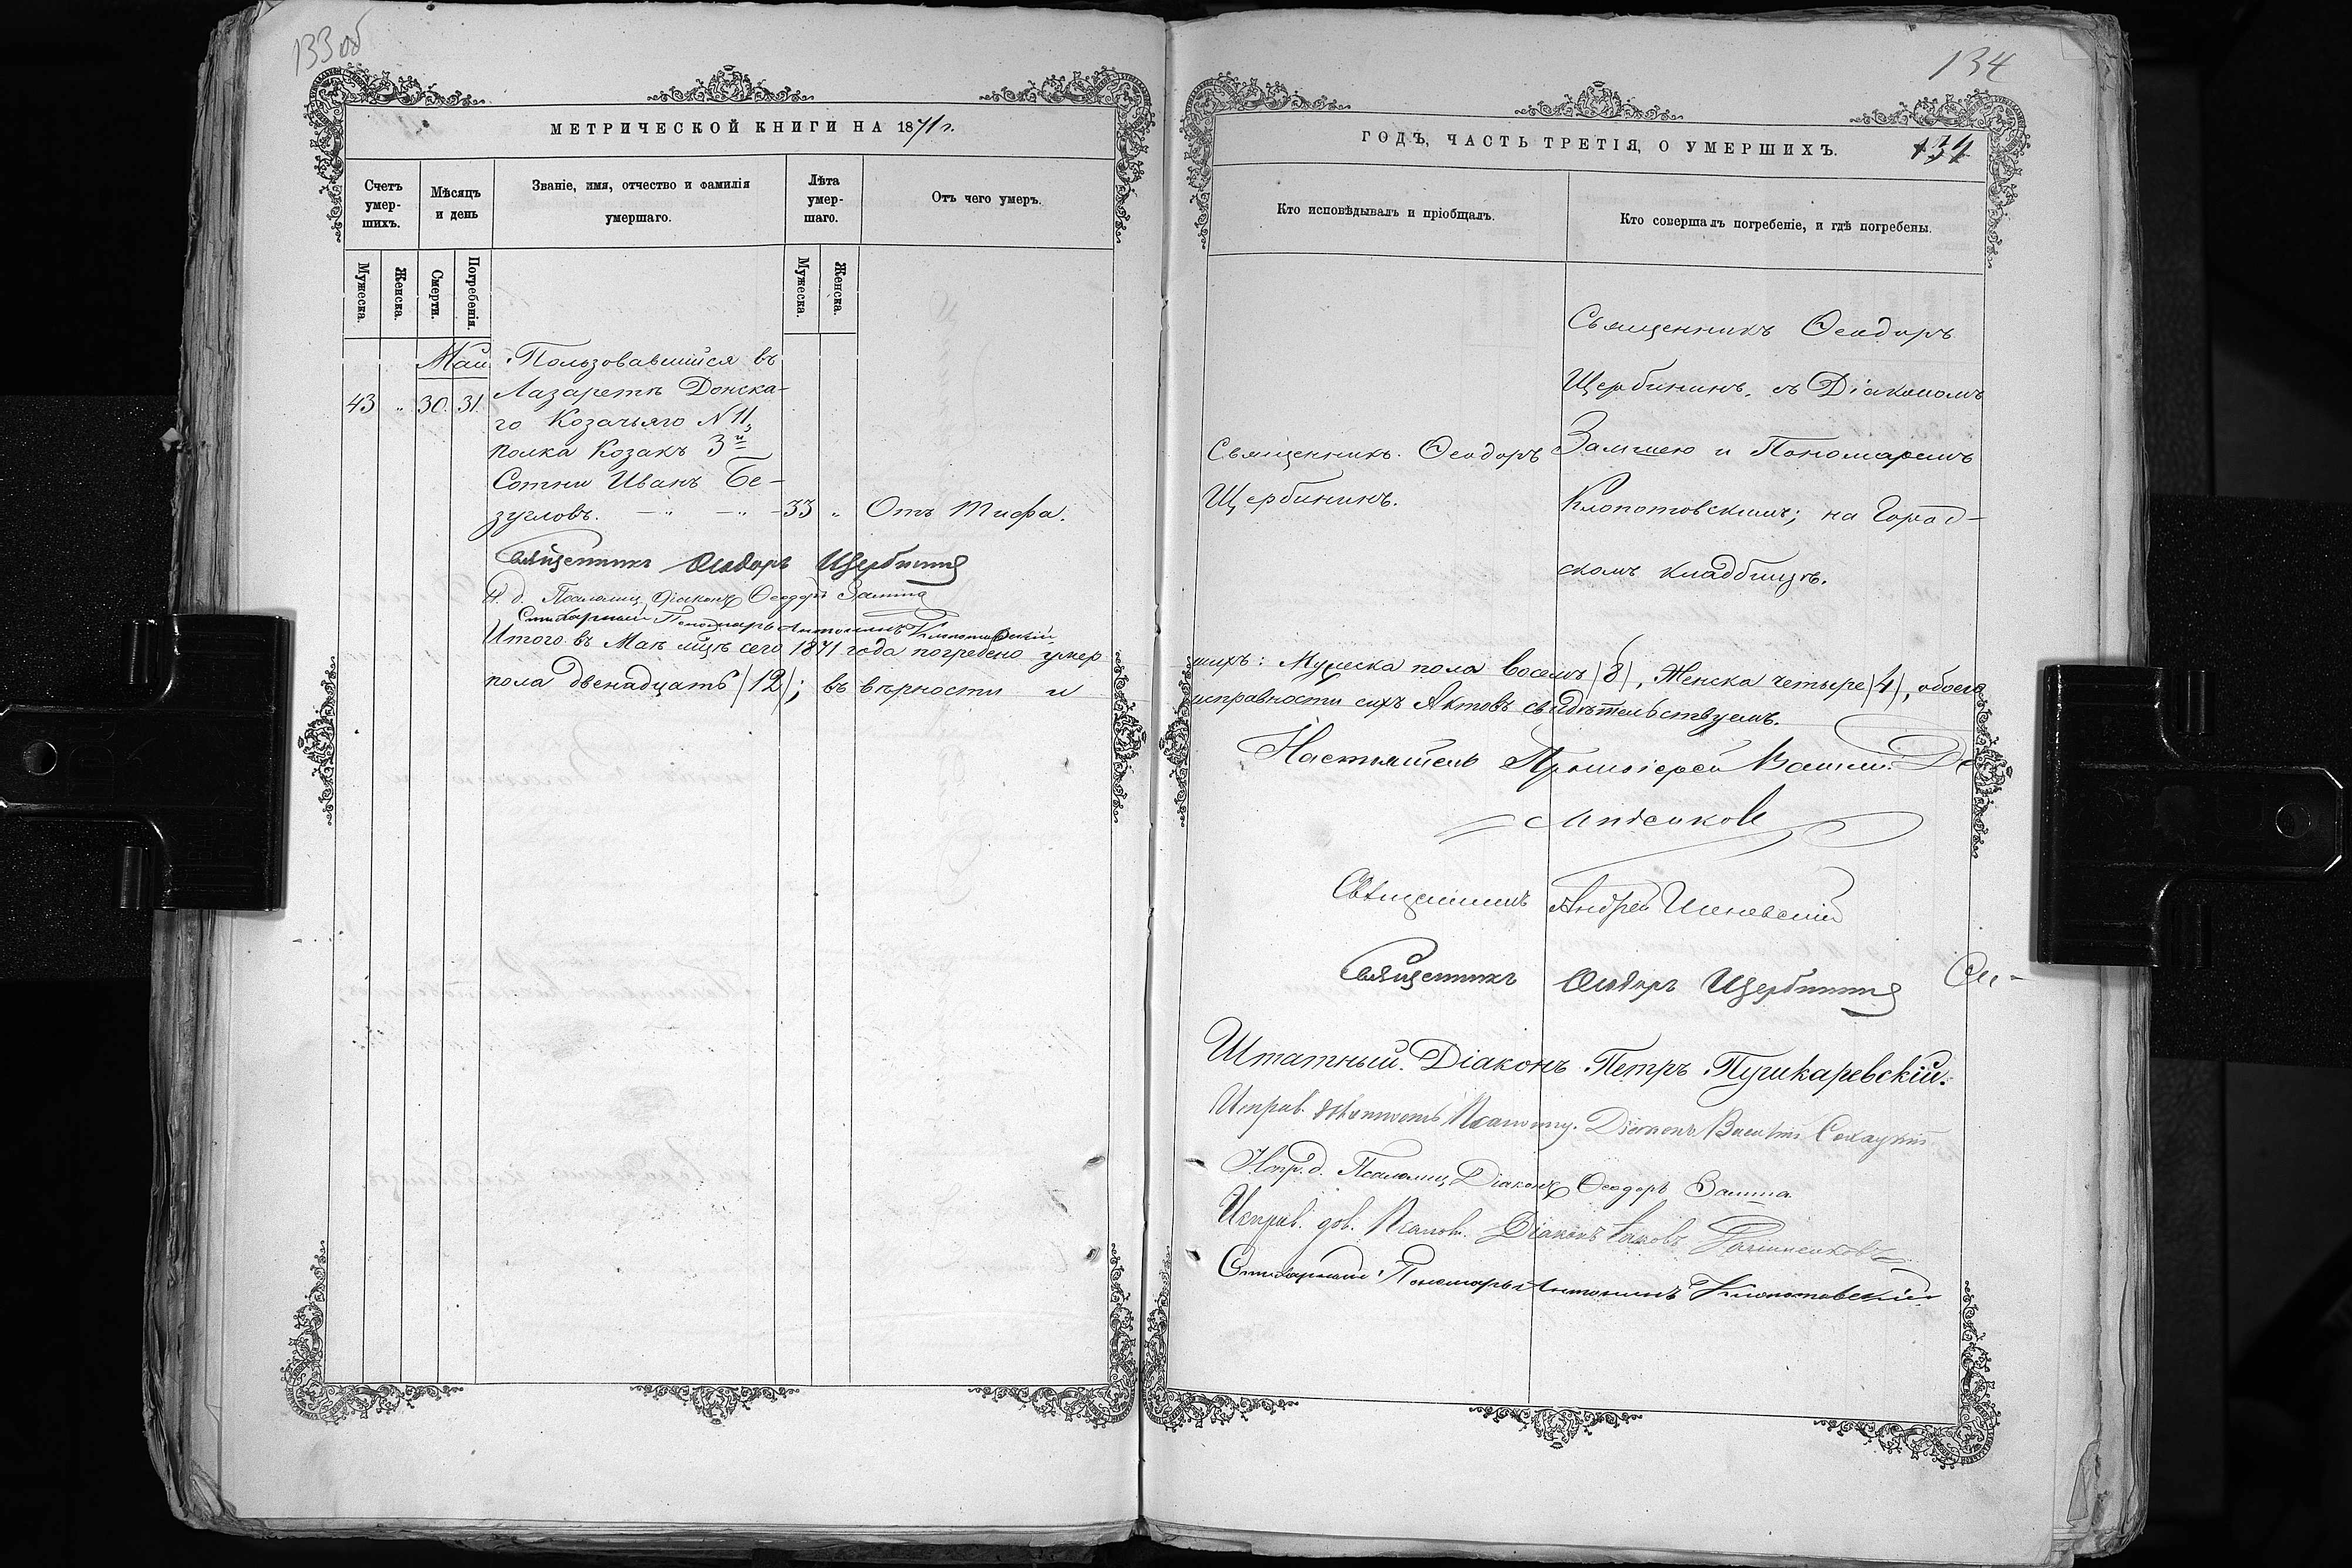 133 об
МЕТРИЧЕСКОЙ КНИГИ НА 1871 г.
Счетъ умер-шихъ.
Мѣсяцъ и день
Званіе, имя, отчество и фамилія умершаго.
Лѣта умер-шаго.
Отъ чего умеръ.
Мужеска.
Женска.
Смерти.
Погребенія.
Мужеска.
Женска.
Маи
43 " 30. 31.
Пользовавшийся въ
Лазаретѣ Донска-
го Козачьяго N 11,
полка Козакъ 3й
Сотни Иванъ Бе-
зугловъ. — " — " — 33 " Отъ тифа.
Священникъ Ѳеодоръ Щербининъ
И. д. Псаломщ. Діаконъ Ѳеодоръ Замша
Стихарный Пономарь Антонинъ Клопотовскій
Итого въ Маѣ мцѣ сего 1871 года погребено умер
пола двенадцать (12); въ вѣрности и
134
ГОДЪ, ЧАСТЬ ТРЕТІЯ, О УМЕРШИХЪ.
134
Кто исповѣдывалъ и пріобщалъ.
Кто совершалъ погребеніе, и гдѣ погребены.
Священникъ Ѳеодоръ
Щербининъ.
Священникъ Ѳеодоръ
Щербининъ, съ Діакономъ
Замшею и Пономаремъ
Клопотовскимъ; на Город-
скомъ кладбищѣ.
шихъ: Мужеска пола восемь (8), Женска четыре (4), обоего
исправности сихъ Актовъ свидѣтельствуемъ.
Настоятель Протоіерей
Священникъ Андрей
Священникъ Ѳеодоръ Щербининъ
Штатный Діаконъ Петръ Пушкаревскій.
Исправ. должность Псаломщ. Діаконъ
Испр. д. Псаломщ. Діаконъ Ѳеодоръ Замша
Исправ. дол. Псалом. Діаконъ Іаковъ
Стихарный Пономарь Антонинъ Клопотовскій